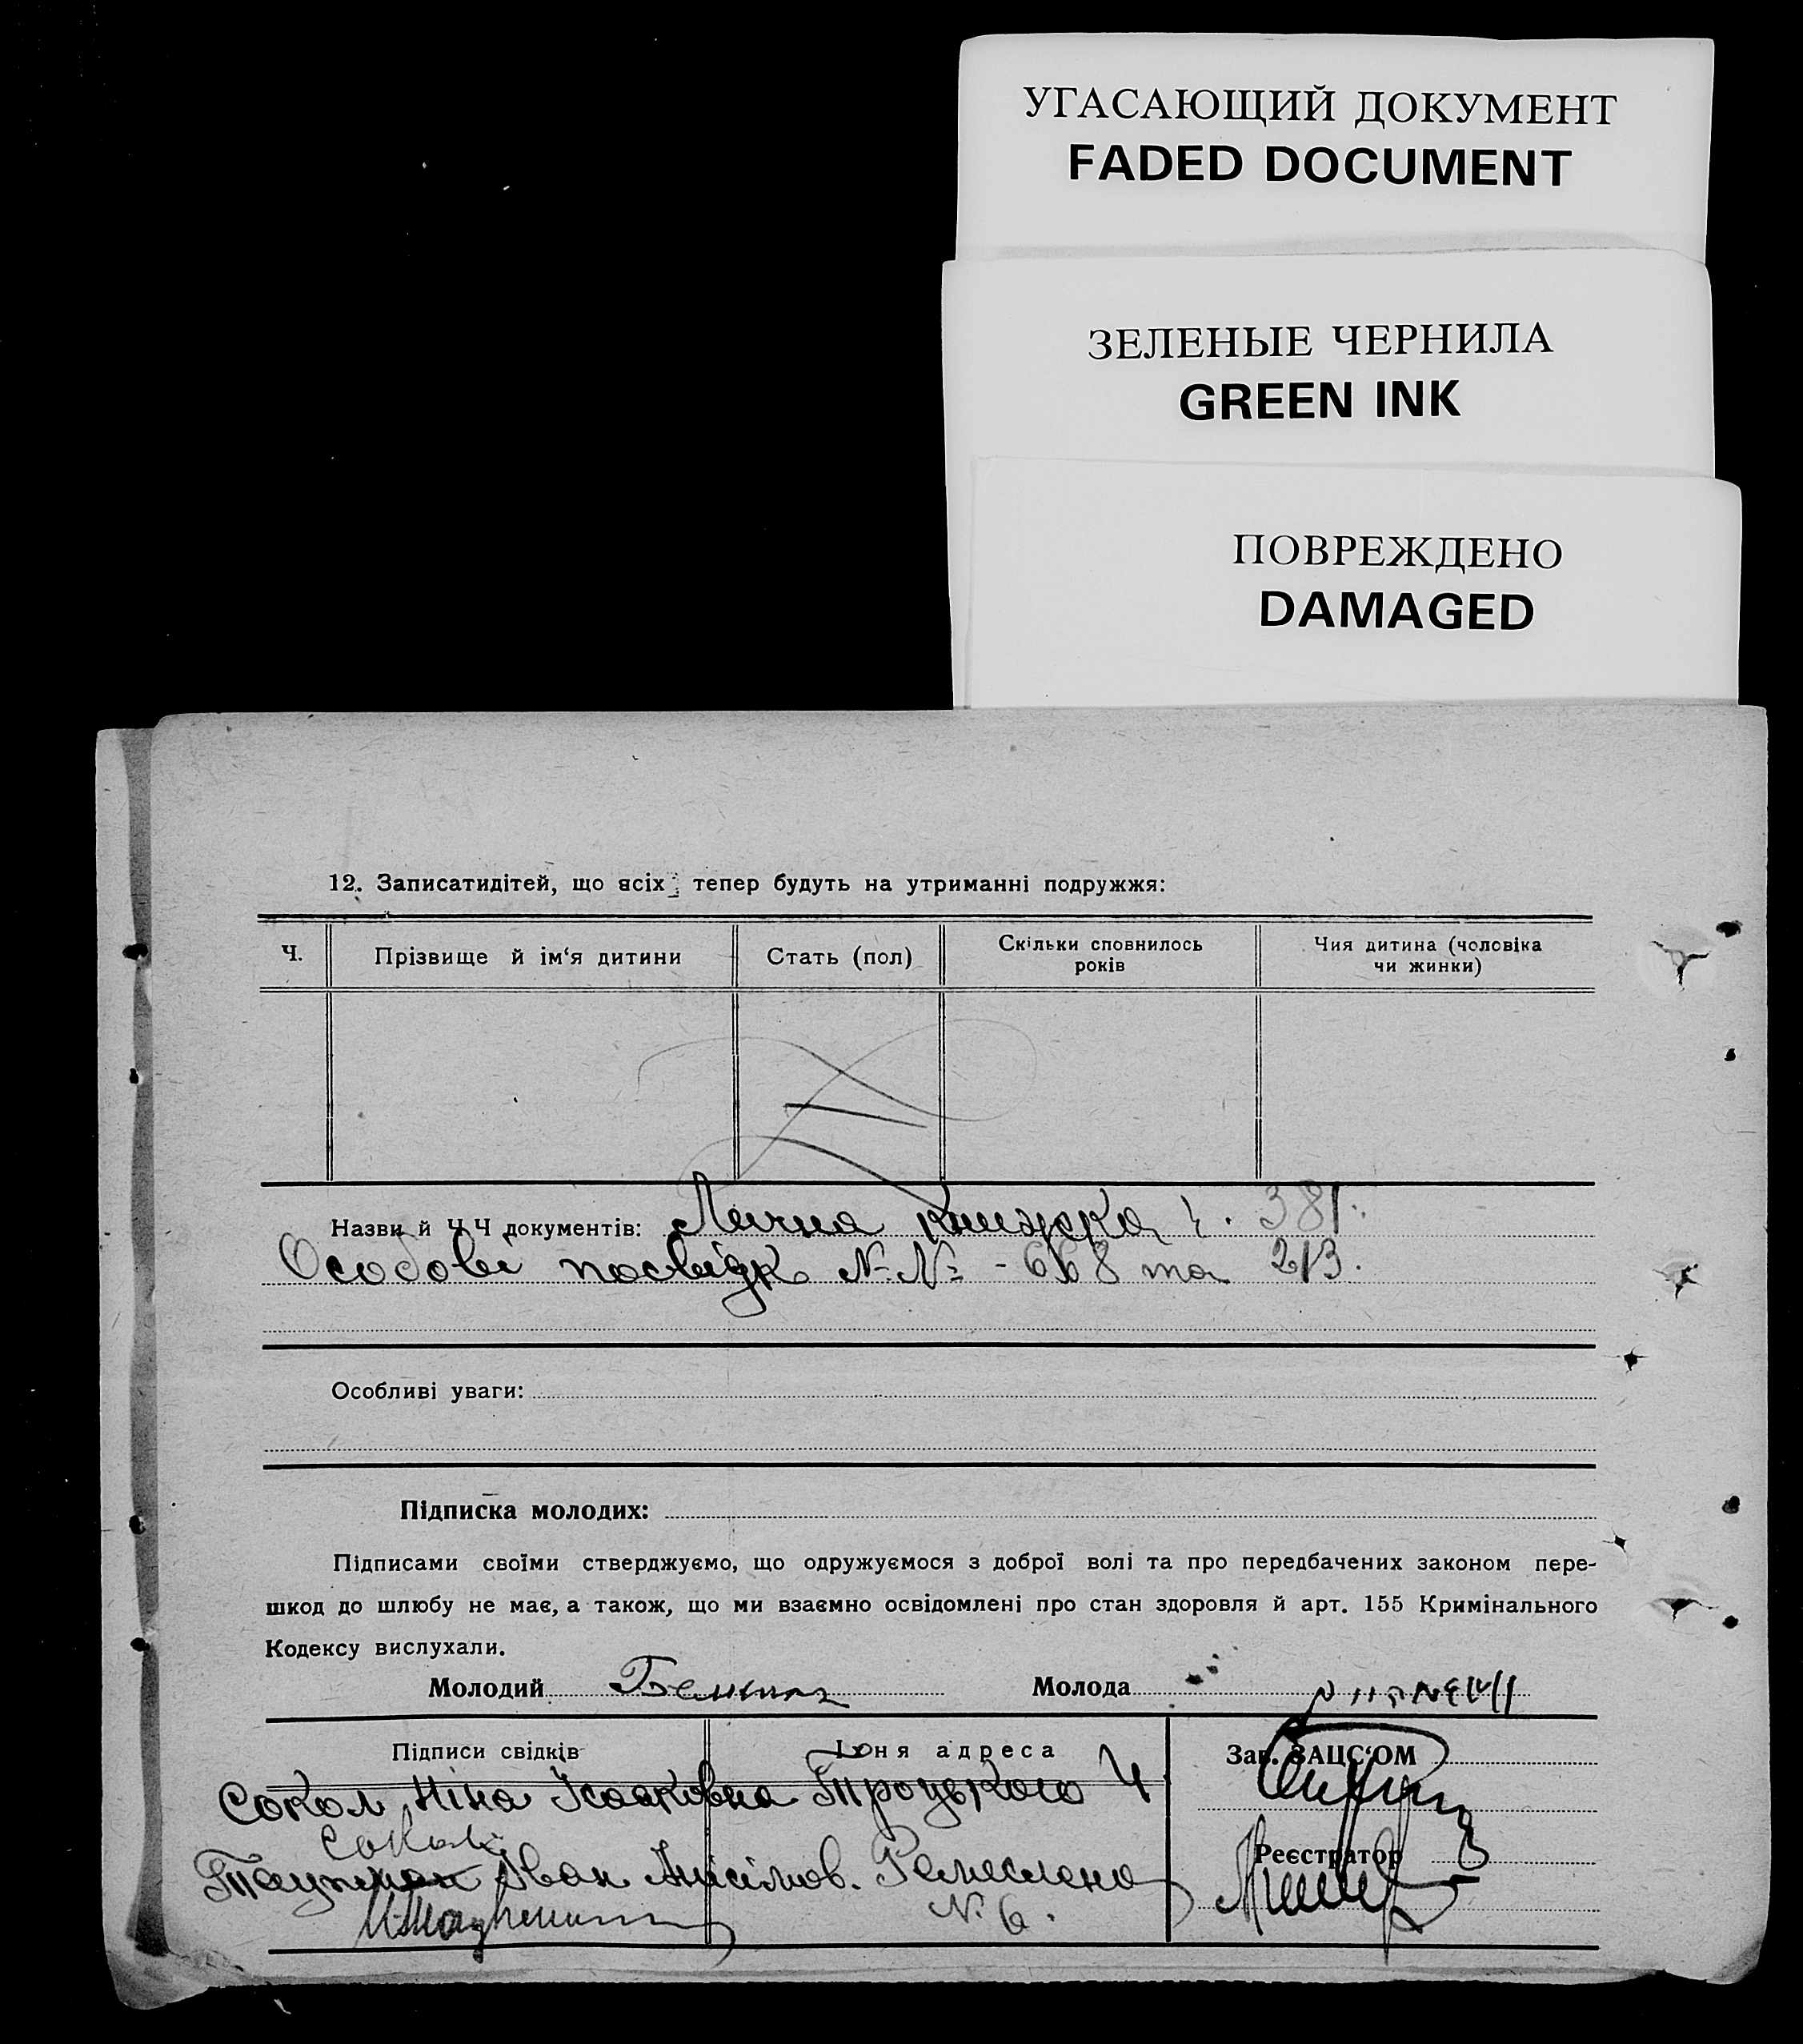 УГАСАЮЩИЙ ДОКУМЕНТ
FADED DOCUMENT
ЗЕЛЕНЫЕ ЧЕРНИЛА
GREEN INK
ПОВРЕЖДЕНО
DAMAGED
12. Записатидітей, що всіх тепер будуть на утриманні подружжя:
Ч. Прізвище й ім‘я дитини Стать (пол) Скільки сповнилось років Чия дитина (чоловіка чи жинки)
Назви й Ч Ч документів: Лична книжка ч. 381.
Особові посвідк №№ - 668 та 213.
Особливі уваги:
Підписка молодих:
Підписами своїми стверджуємо, що одружуємося з доброї волі та про передбачених законом пере-
шкод до шлюбу не має, а також, що ми взаємно освідомлені про стан здоровля й арт. 155 Кримінального
Кодексу вислухали.
Молодий Молода
Підписи свідків Їхня адреса Зав. ЗАЦС‘ОМ
Сокол Ніна Ісааковна Троцького 4
Сокол
Реєстратор
Іван Анісімов. Ремеслена
№ 6.